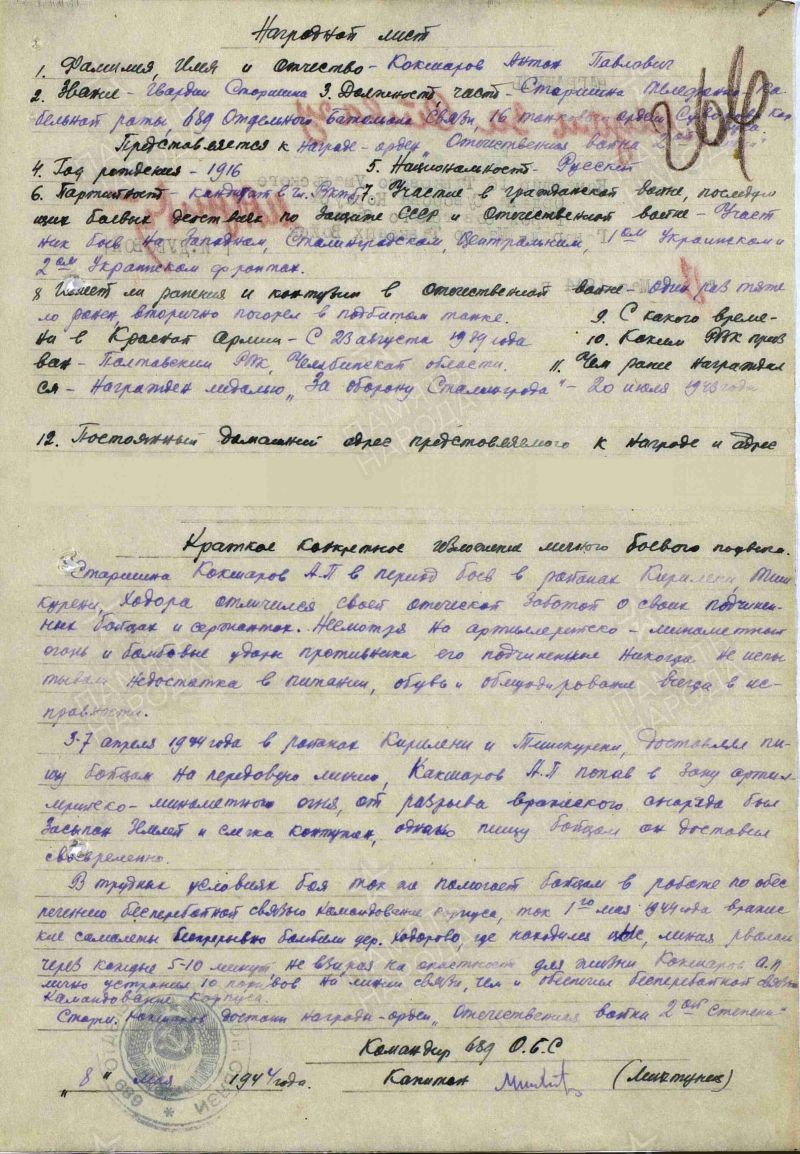 Наградной лист
1. Фамилия, Имя и отчество - Кокшаров Антон Павлович
2. Звание - Гвардии Старшина 3. Должность, часть - Старшина ка-
бельной роты 689 Отдельного Батальона Связи 16 танкового ордена
Представляется к награде - орден "Отечественная война 2ой
4. Год рождения - 1916 5. Национальность - Русский
6. Партийность - кандидат в чл. ВКПб 7. Участие в гражданской войне, последую
щих боевых действиях по защите СССР и отечественной войне - Участ
ник боев на Западном, Сталинградском, Центральним, 1ом Украинском и
2ом Украинском фронтах.
8 Имеет ли ранения и контузии в отечественной войне - один раз тяже
ло ранен, вторично погорел в подбитом танке. 9. С какого време-
ни в Красной армии - С 23 августа 1939 года 10. Каким РВК приз
ван - Полтавским РВК, Челябинской области. 11. Чем ранее награждал
ся - Награжден медалью "За оборону Сталинграда" - 20 июля 1943 года
12. Постоянный домашний адрес представляемого к награде и адрес
Краткое конкретное изложение личного боевого подвига.
Старшина Кокшаров А.П в период боев в районах Кирилени, Тиш
курени, Ходора отличился своей отеческой заботой о своих подчинен-
ных бойцах и сержантах. Несмотря на артиллерийско - минометный
огонь и бомбовые удары противника его подчиненные никогда не испы
тывали недостатка в питании, обувь и обмундирование всегда в ис-
правности.
3-7 апреля 1944 года в районах Кирилени и Тишкурени, доставляя пи-
щу бойцам на передовую линию, Какшаров А.П попав в зону артил
лерийско - минометного огня, от разрыва вражеского снаряда был
засыпан землей и слегка контужен, однако пищу бойцам он доставил
своевременно.
В трудных условиях боя так же помогает бойцам в работе по обес
печению бесперебойной связью командование корпуса, так 1го мая 1944 года вражес
кие самолеты беспрерывно бомбили дер. Ходорово, где находился линия рвалась
через каждые 5-10 минут, не взирая на опастность для жизни Кокшаров А.П
лично устранил 10 порывов на линии связи, чем и обеспечил бесперебойной связью
командование корпуса.
Старш. Кокшаров достоин награды - орден "Отечественная война 2ой степени"
Командир 689 О.Б.С
"8" мая 1944 года. Капитан